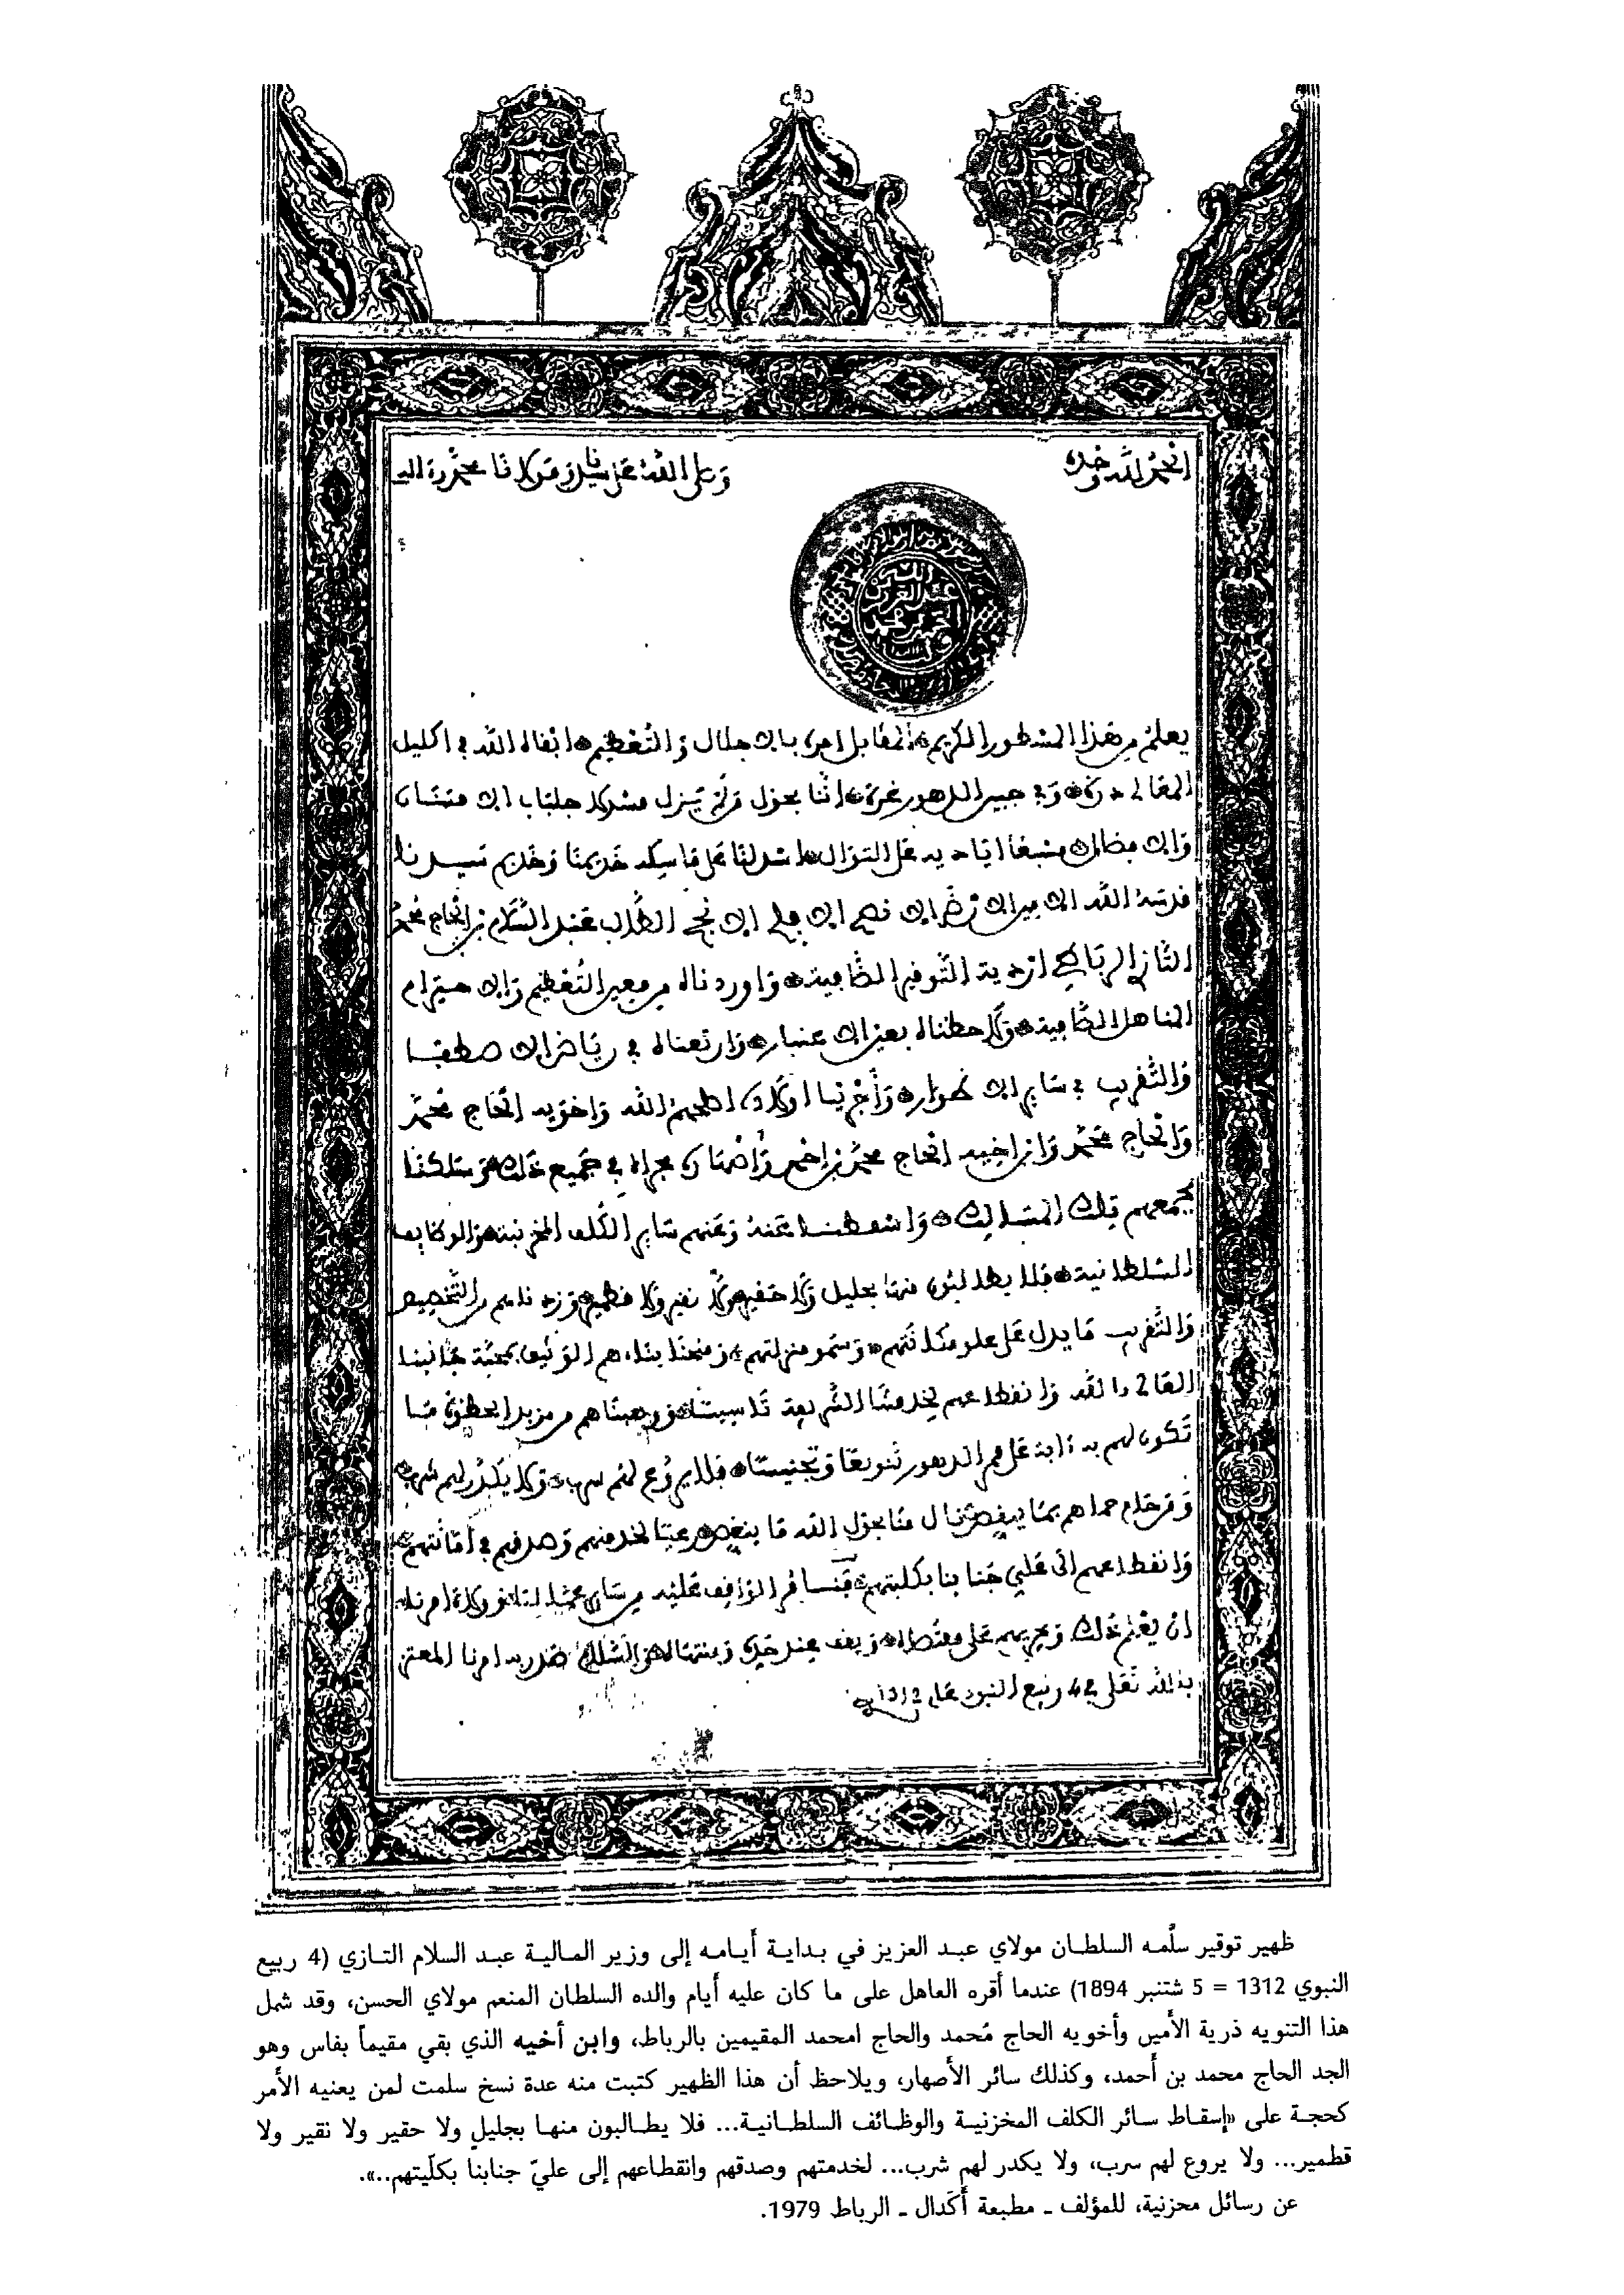 الحمد لله وحده
وصلى الله على سيدنا ومولانا محمد وءاله
عبد العزيز
يعلم من هذا المسطور الكريم المقابل امره بالاجلال والتعظيم ابقاه الله في اكليل
المعالي درة وفي جبين الدهور غرة اننا بحول من لم يزل مسدلا جلباب الامتنان
والافضال مسبغا اياديه على التوال اسدلنا على ماسكه خديمنا وخديم سيدنا
قدسه الله الامين الارضى الانصح الافلح الانجح الطالب عبد السلام بن الحاج محمد
التازي الرباطي اردية التوقير الضافية واوردناه من معين التعظيم والاحترام
المناهل الصافية ولاحظناه بعين الاعتبار وارتعناه في رياض الاصطفا
والتقريب في ساير الاطوار واجرينا اولاده اصلحهم الله واخويه الحاج محمد
والحاج محمد وابن اخيه الحاج محمد بن احمد واصهاره مجراه في جميع ذلك وسلكنا
بجميعهم تلك المسالك واسقطنا عنه وعنهم ساير الكلف المخزنية والوظايف
السلطانية فلا يطالبون منها بجليل ولا حقير ولا نقير ولا قطمير وزدناهم من التخصيص
والتقريب ما يدل على علو مكانتهم وسمو منزلتهم
العالي بالله وانقطاعهم لخدمتنا الشريفة
تكون لهم به على مر الدهور تنويها فلا يروع لهم سرب ولا يكدر لهم شرب
ومن حام حماهم بحول الله لخدمتهم وصدقهم في امانتهم
وانقطاعهم الى علي جنابنا بكليتهم فنامر الواقف عليه من ساير عمالنا وولاة امرنا
ان يعلم ذلك ويجريهم على مقتضاه ويقف عند حده ومنتهاه والسلام صدر به امرنا المعتز
بالله تعلى في 4 ربيع النبوي عام 1312
ظهير توقير سلّمه السلطان مولاي عبد العزيز في بداية أيامه إلى وزير المالية عبد السلام التازي (4 ربيع
النبوي 1312 = 5 شتنبر 1894) عندما أقره العاهل على ما كان عليه أيام والده السلطان المنعم مولاي الحسن، وقد شمل
هذا التنويه ذرية الأمين وأخويه الحاج مُحمد والحاج امحمد المقيمين بالرباط، وابن أخيه الذي بقي مقيماً بفاس وهو
الجد الحاج محمد بن أحمد، وكذلك سائر الأصهار، ويلاحظ أن هذا الظهير كتبت منه عدة نسخ سلمت لمن يعنيه الأمر
كحجة على «إسقاط سائر الكلف المخزنية والوظائف السلطانية... فلا يطالبون منها بجليل ولا حقير ولا نقير ولا
قطمير... ولا يروع لهم سرب، ولا يكدر لهم شرب... لخدمتهم وصدقهم وانقطاعهم إلى عليّ جنابنا بكلّيتهم..».
عن رسائل محزنية، للمؤلف ـ مطبعة أكدال ـ الرباط 1979.